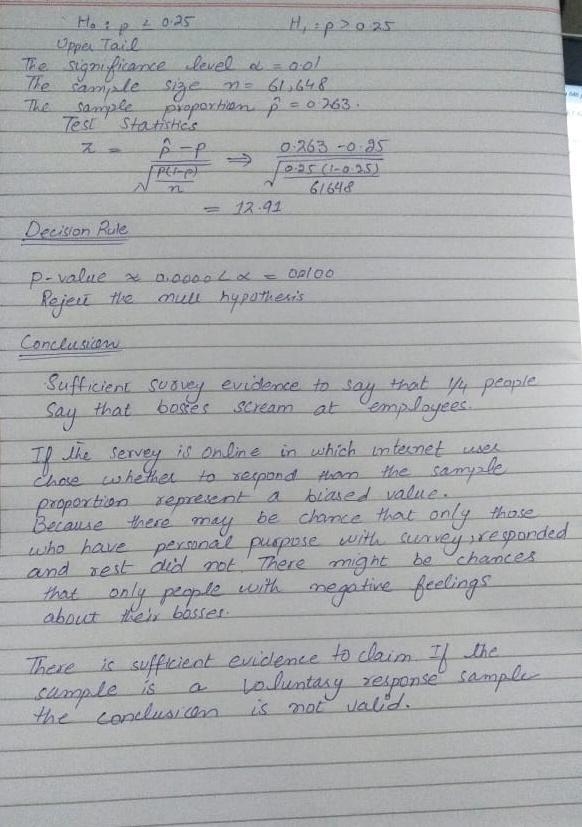 H₀ : p ≤ 0.25 H₁ : p > 0.25
Upper Tail
The significance level α = 0.01
The sample size n = 61,648
The sample proportion p̂ = 0.263.
Test Statistics
z = (p̂ - p) / √(p(1-p)/n) ⇒ (0.263 - 0.25) / √(0.25 (1-0.25)/61648)
= 12.91
Decision Rule
P-value ≈ 0.0000 < α = 00100
Reject the null hypothesis
Conclusion
Sufficient survey evidence to say that 1/4 people
Say that bosses scream at employees.
If the servey is online in which internet user
chose whether to respond than the sample
proportion represent a biased value.
Because there may be chance that only those
who have personal purpose with survey, responded
and rest did not. There might be chances
that only people with negative feelings
about their bosses.
There is sufficient evidence to claim. If the
sample is a voluntary response sample
the conclusion is not valid.